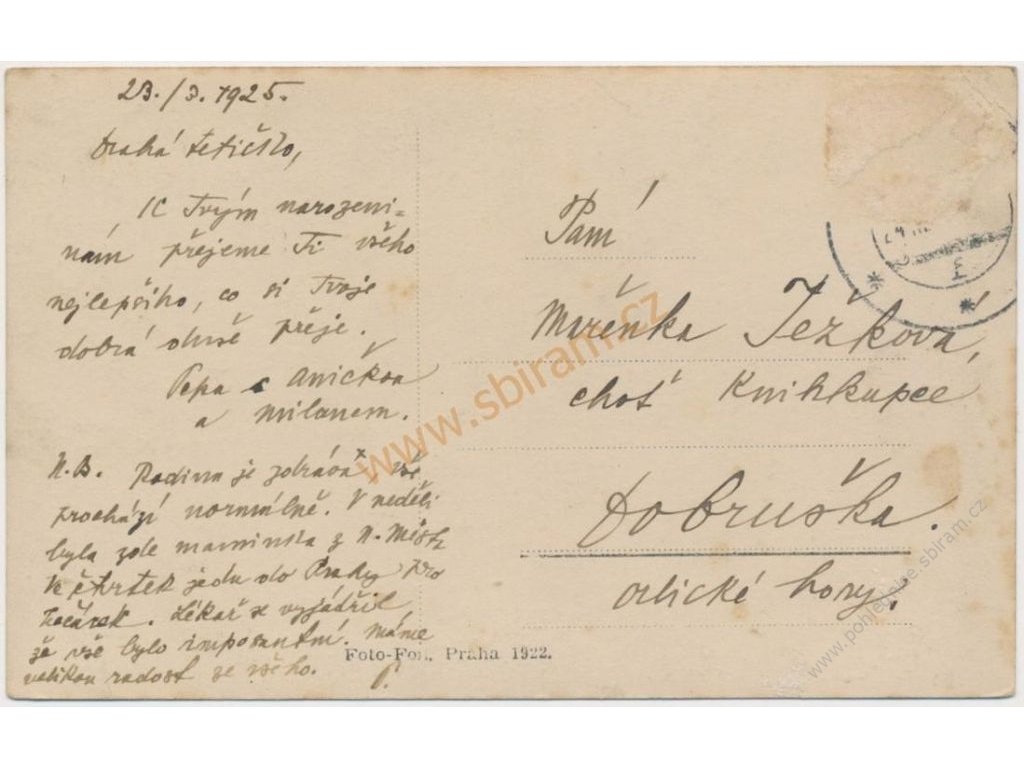 23./3. 1925.
Drahá tetičko,
K Tvým narozeni-
nám přejeme Ti všeho
nejlepšího, co si Tvoje
dobrá duše přeje.
Pepa s Aničkou
a Milanem.
N.B. je vše
prochází normálně. V neděli
byla zde maminka z N. Města
Ve čtvrtek jedu do Prahy pro
kočárek. Lékař se vyjádřil,
že vše bylo imposantní. Máme
velikou radost ze všeho. P.
Paní
Mařenka Ježková,
choť knihkupce
Dobruška.
Orlické hory.
Foto-Fon, Praha 1922.
www.sbiram.cz
www.pohlednice.sbiram.cz